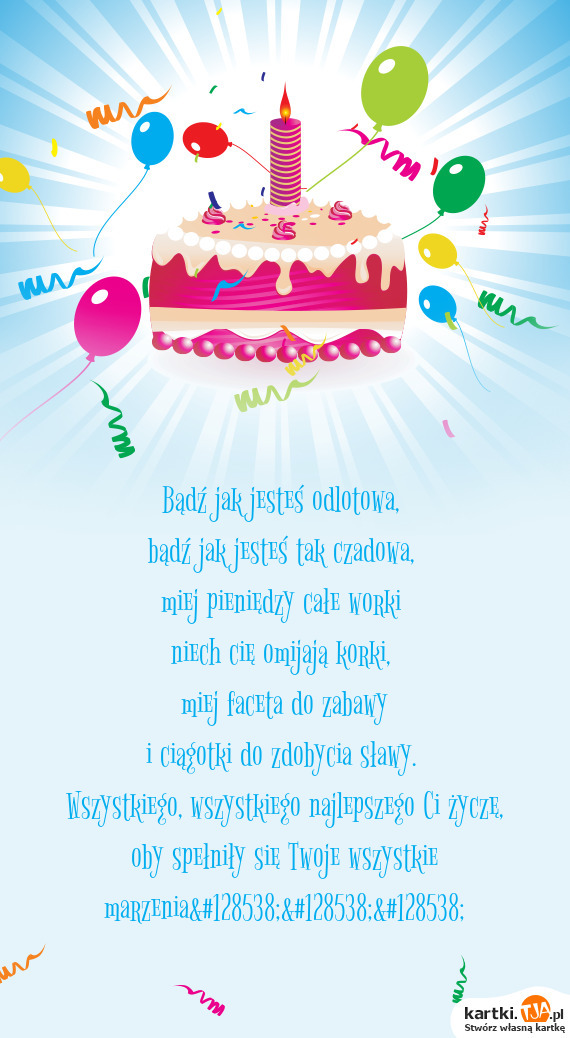 Bądź jak jesteś odlotowa,
bądź jak jesteś tak czadowa,
miej pieniędzy całe worki
niech cię omijają korki,
miej faceta do zabawy
i ciągotki do zdobycia sławy.
Wszystkiego, wszystkiego najlepszego Ci życzę,
oby spełniły się Twoje wszystkie
marzenia&#128538;&#128538;&#128538;
kartki.TJA.pl
Stwórz własną kartkę